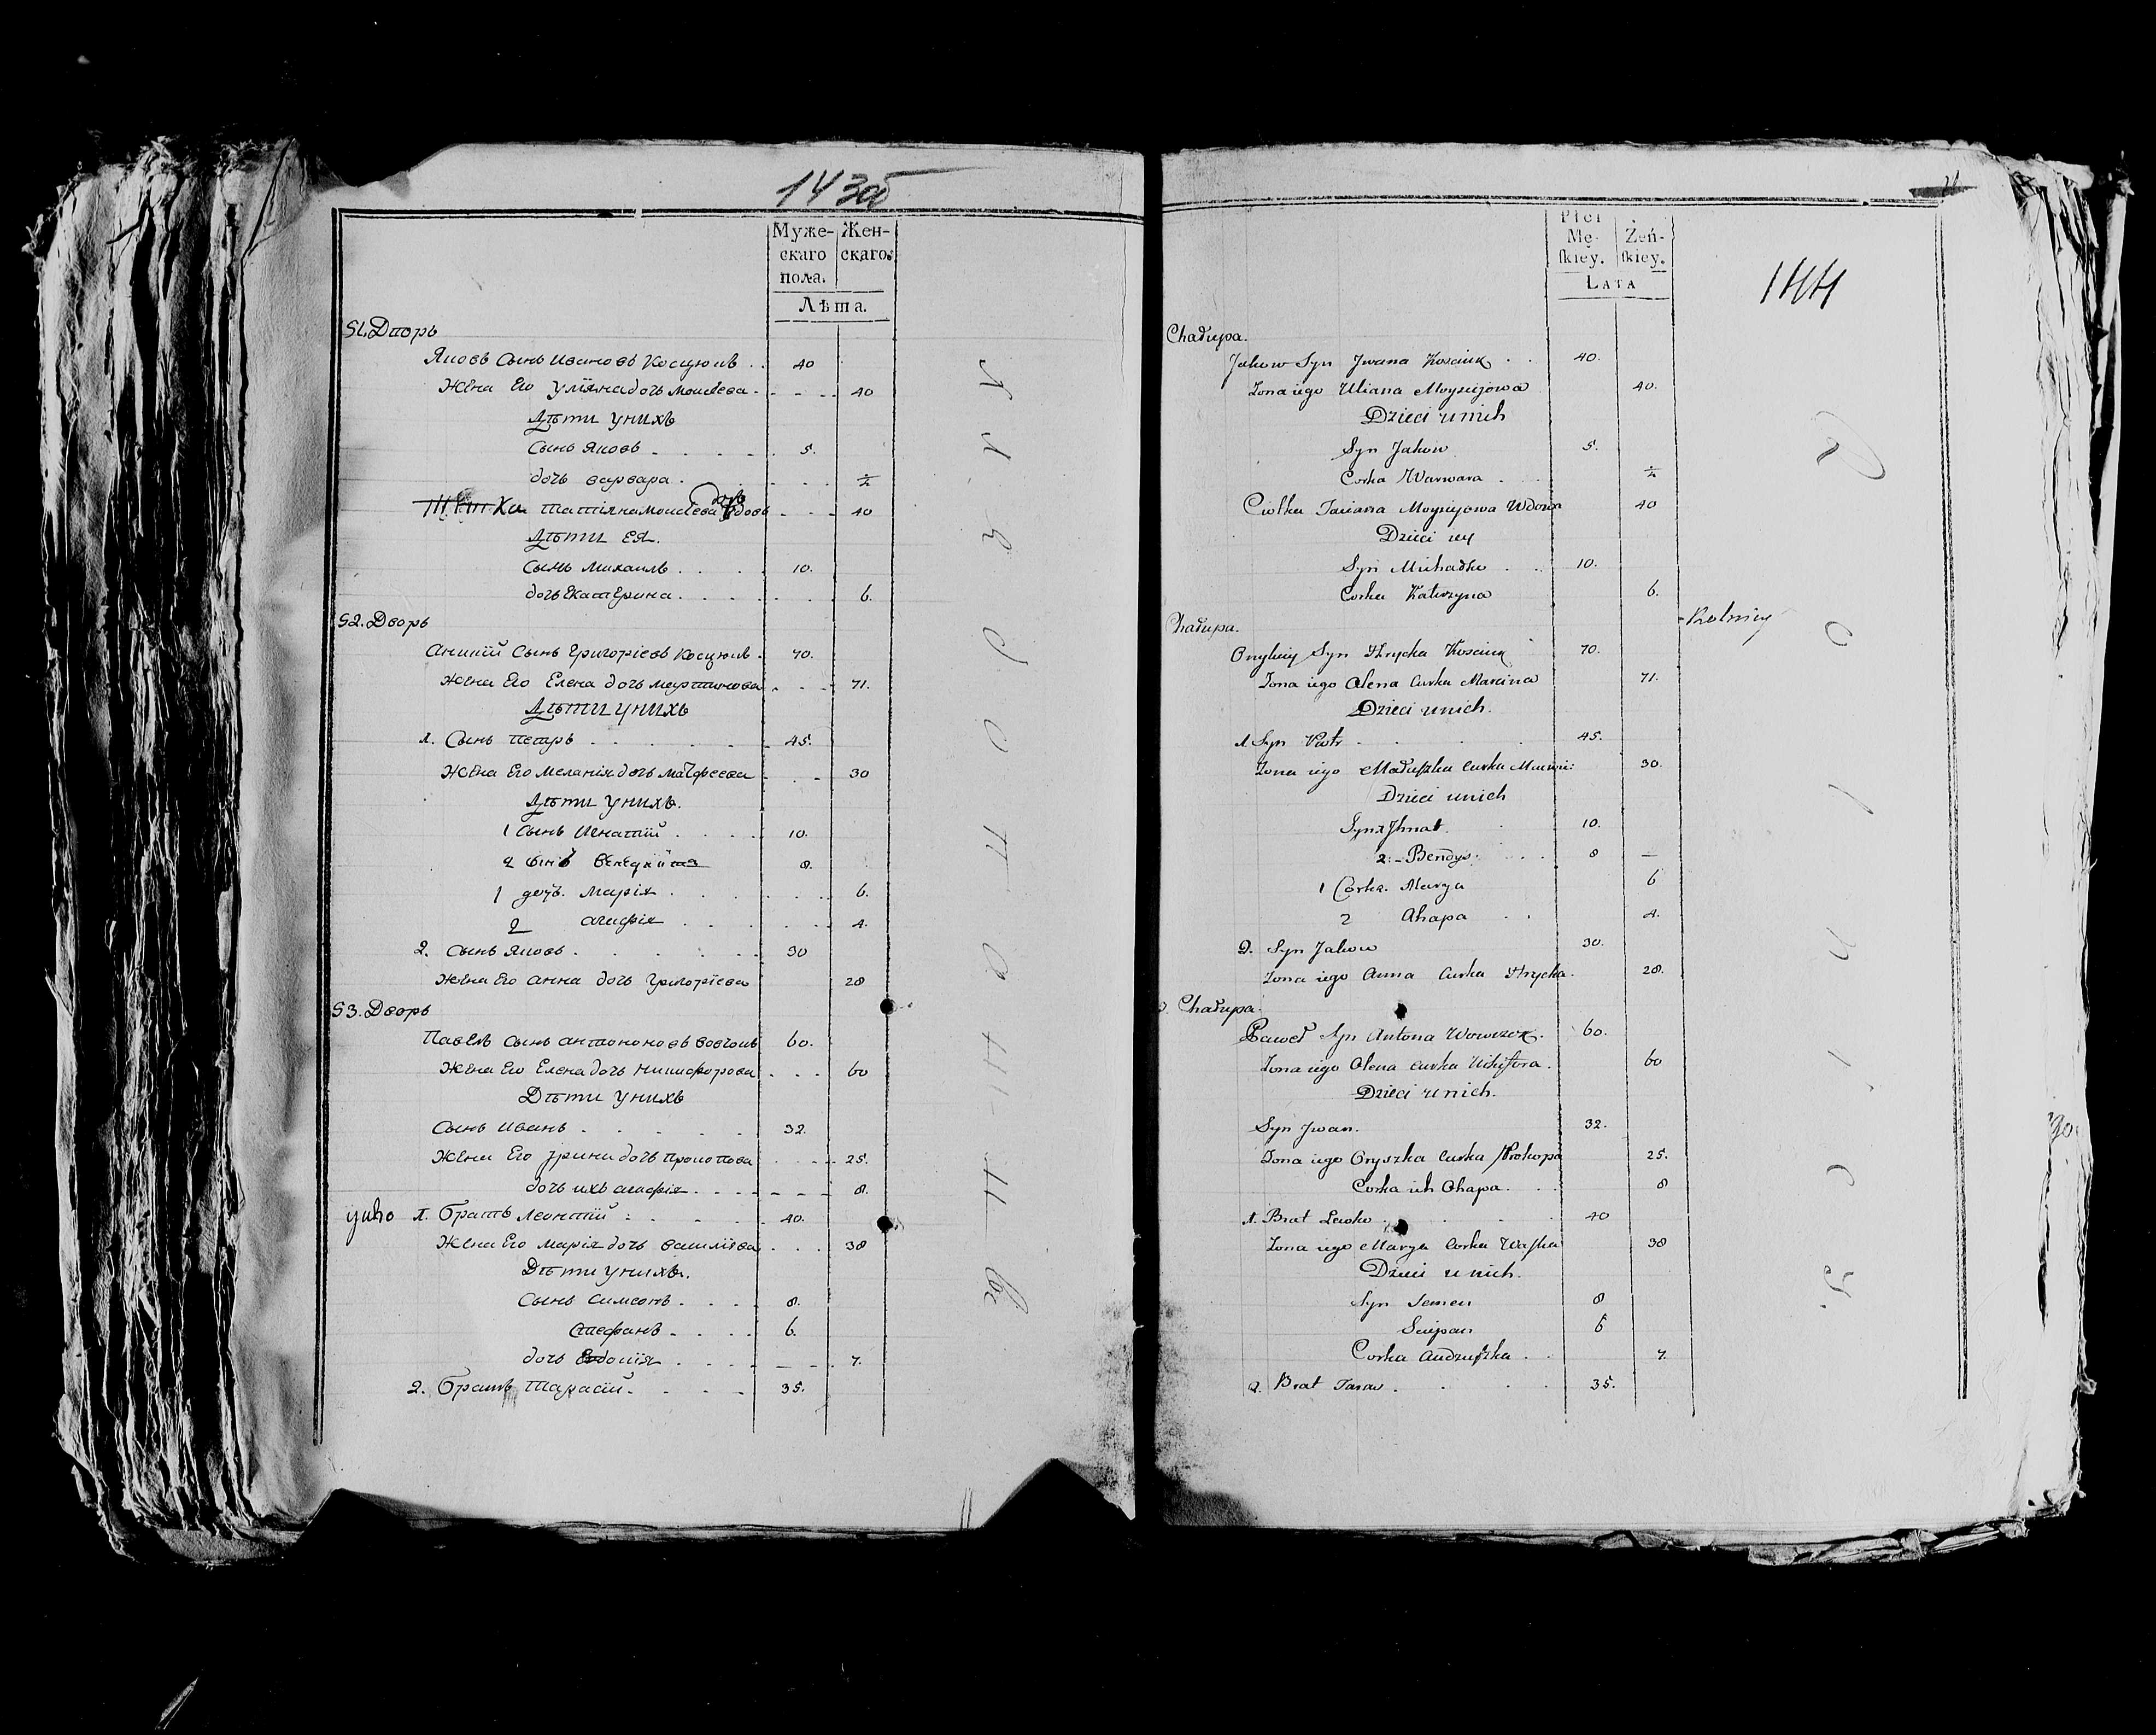 143об
Муже- Жен-
скаго скаго
пола.
Лѣта.
51. Дворъ
Яковъ Сынъ Ивановъ Косцюкъ . . 40
Жена Его Уліяна дочь моисеева . 40
Дѣти унихъ
Сынъ Яковъ 5.
дочь варвара . ½
татіяна моисеева вдова 40
Дѣти ея.
Сынъ михаилъ 10.
дочь Екатерина 6.
52. Дворъ
Аникій Сынъ Григоріевъ Косцюкъ . 70.
жена Его Елена дочь мартинова 71.
Дѣти унихъ
1. Сынъ петръ 45.
жена Его меланія дочь матфеева 30
Дѣти унихъ.
1 Сынъ Игнатій 10.
2 сынъ венедикта 8.
1 дочь. Марія . 6.
2 агафія 4.
2. Сынъ Яковъ . 30
жена Его анна дочь Григоріева 28
53. Дворъ
Павелъ сынъ антононовъ вовчокъ 60.
жена Его Елена дочь никифорова 60
Дѣти унихъ
Сынъ иванъ . 32.
жена Его ирина дочь прокопова 25.
дочь ихъ агафія 8.
1. братъ леонтій 40.
жена Его марія дочь василіева 38
Дѣти унихъ.
сынъ симеонъ 8.
стефанъ 6.
дочь Евдокія 7.
2. братъ тарасій 35.
Płci
Mę- Żeń-
ſkiey. ſkiey.
Lata
144
Chałupa.
Jakow Syn Jwana Kosciuk 40.
Zona iego Uliana Moysiejowa 40.
Dzieci u nich
Syn Jakow 5.
Corka Warwara ½
Ciotka Taciana Moysiejowa Wdowa 40
Dzieci iey
Syn Michałko 10.
Corka Katerzyna 6.
Chałupa. Rolniey
Onykiey Syn Hrycka Kosciuk 70.
Zona iego Olena Curka Marcina 71.
Dzieci unich.
1. Syn Piotr 45.
Zona iego Małaszka Curka 30.
Dzieci unich
Syn 1 Jhnat. 10.
2. Bendys 8
1 Corka. Marya 6
2 Ahapa 4.
2. Syn Jakow 30.
Zona iego Anna Curka Hrycka. 28.
Chałupa.
Paweł Syn Antona Wowczok. 60.
Zona iego Olena Curka Nikifora. 60
Dzieci u nich.
Syn Jwan. 32.
Zona iego Oryszka Curka Prokopa 25.
Corka ich Ahapa. 8
1. Brat Lewko 40
Zona iego Marya Corka Waſka 38
Dzieci u nich.
Syn Semen 8
Sciepan 6
Corka 7.
2. Brat Taras . 35.